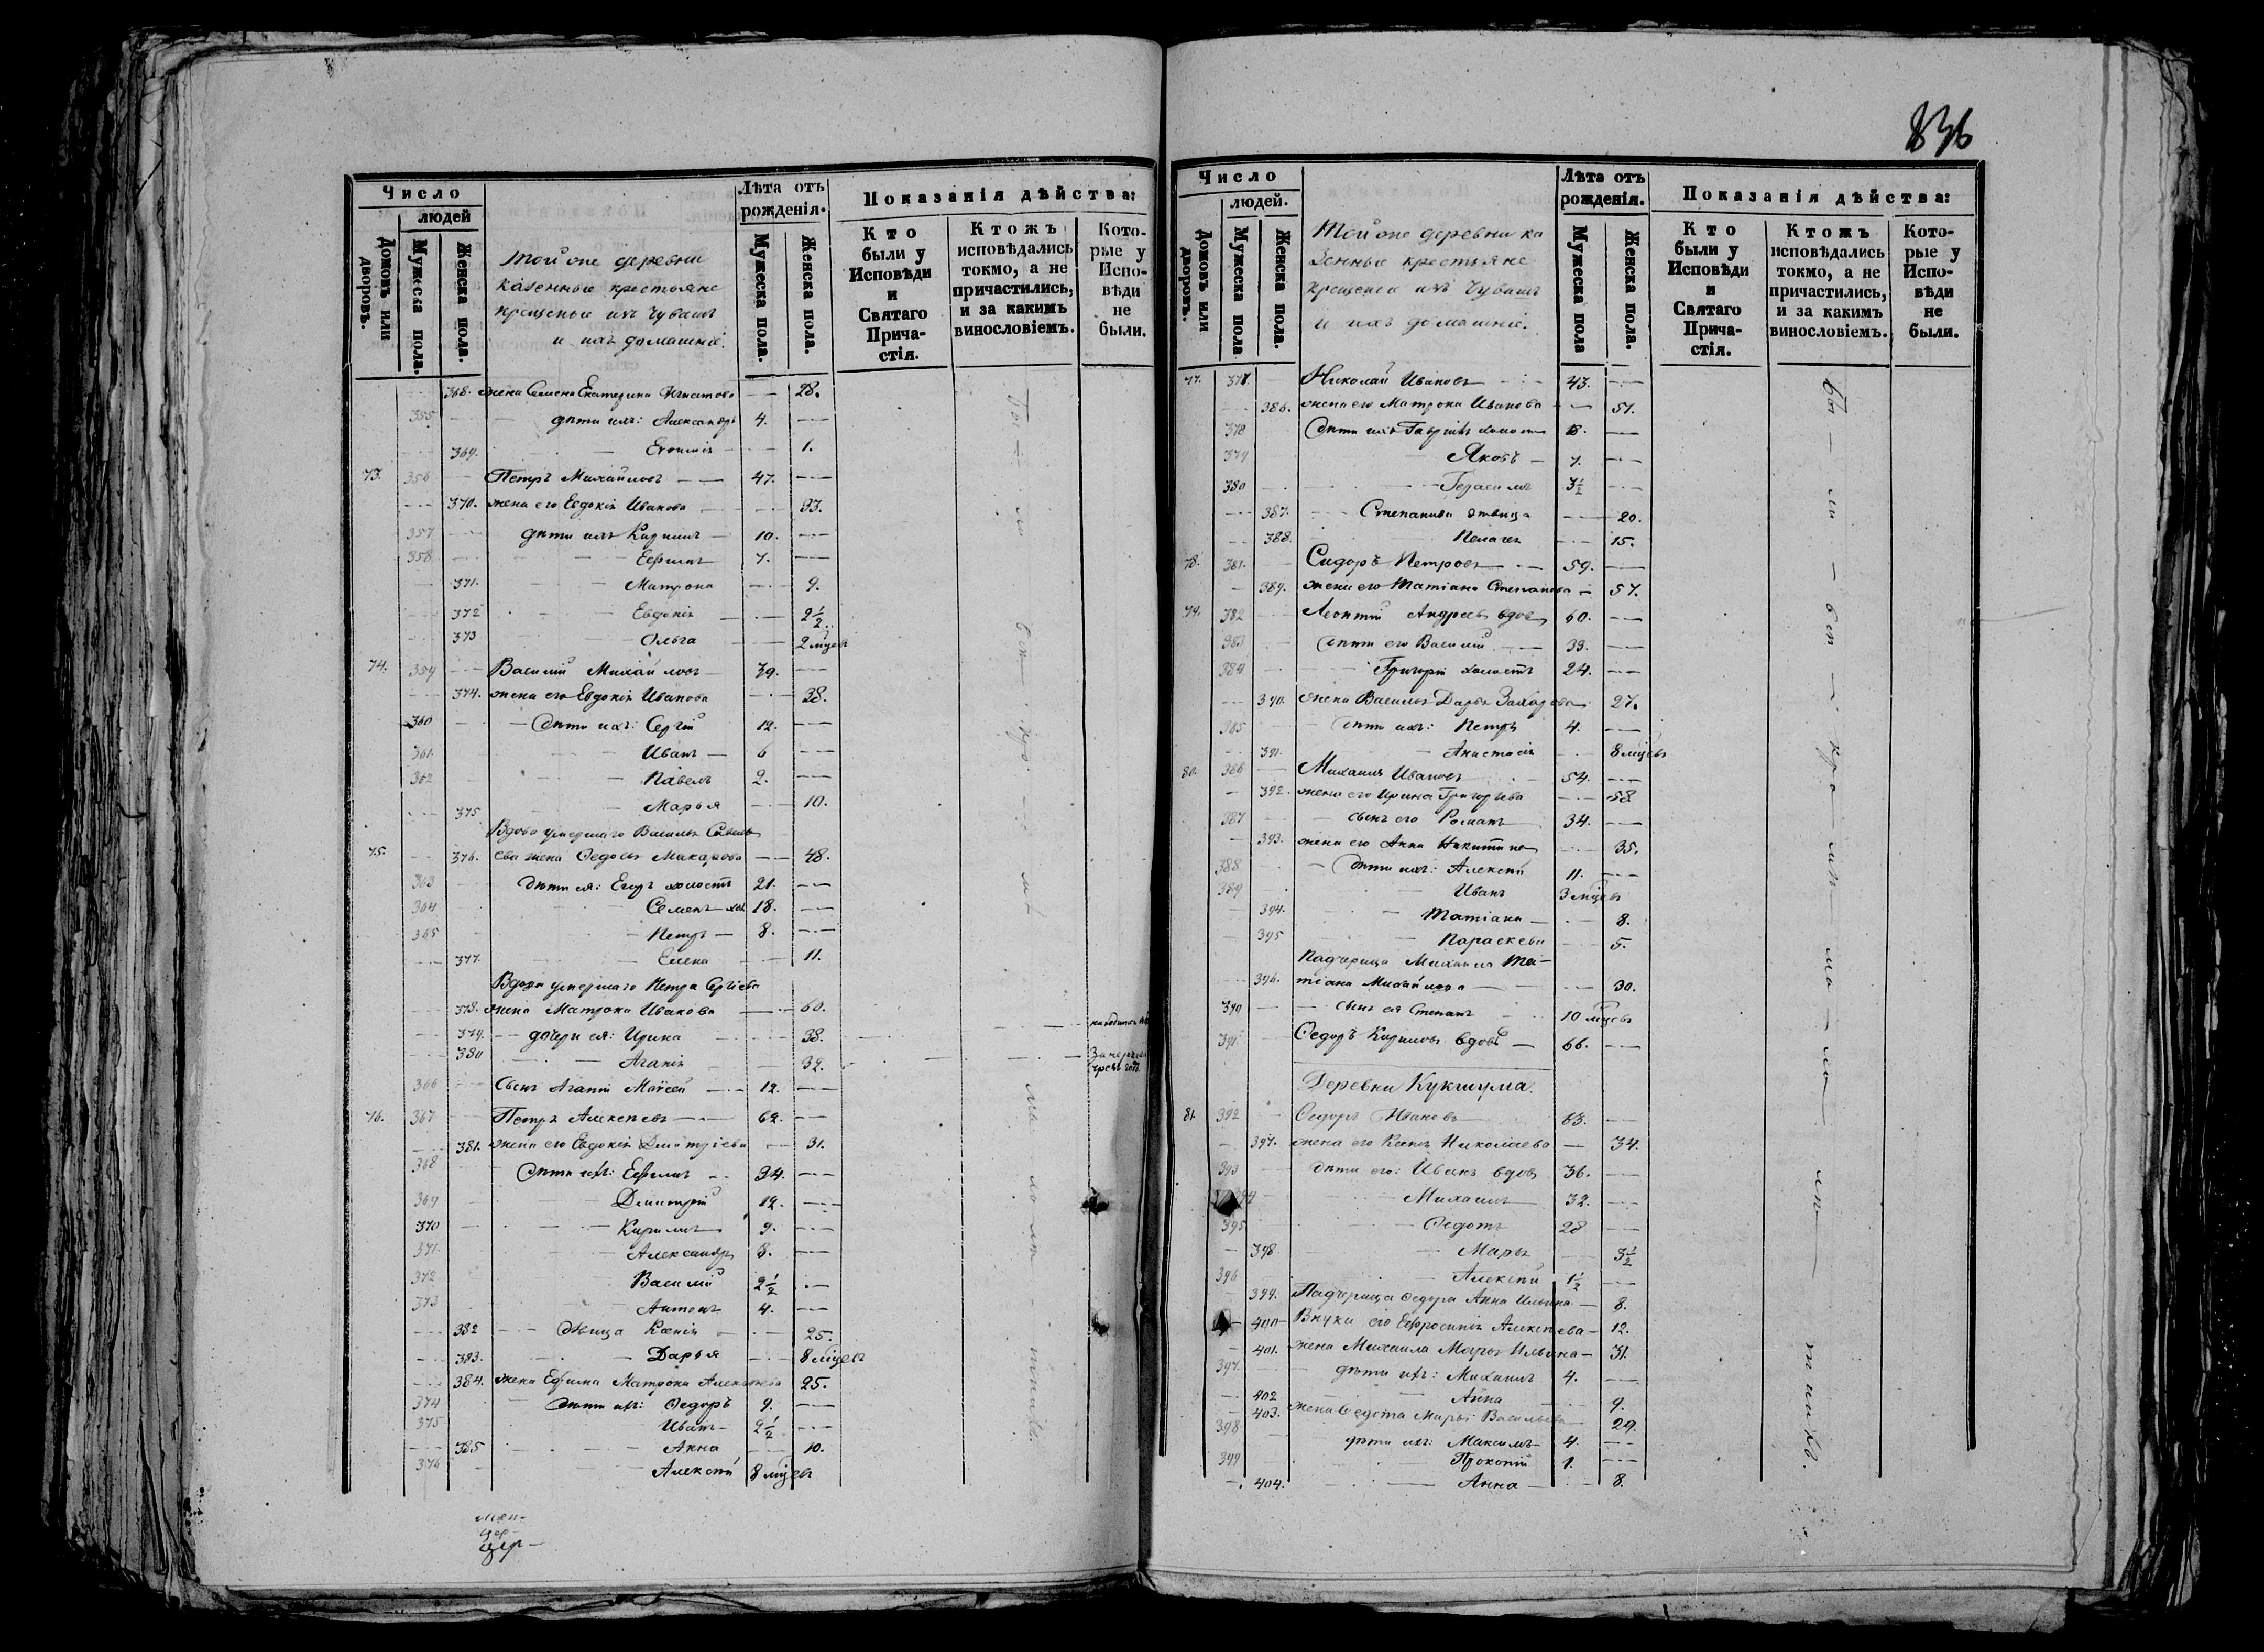 836
Число
людей
Домовъ или дворовъ.
Мужеска пола.
Женска пола.
Тойоне деревни
казенные крестьяне
крещеные изъ Чувашъ
и ихъ домашніе.
Лѣта отъ рожденія.
Мужеска пола.
Женска пола.
Показанія дѣйства:
Кто были у Исповѣди и Святаго Прича-стія.
Ктожъ исповѣдались токмо, а не причастились, и за какимъ винословіемъ.
Кото-рые у Испо-вѣди не были.
368. жена Семена Екатерина Игнатова — 28.
355. дѣти ихъ: Александръ 4.
369. 1.
73. 356 Петръ Михайловъ — 47.
370. жена его Евдокія Иванова 33.
357 дѣти ихъ Кирилъ — 10.
358 Ефимъ 7.
371. Матрона 9.
372 Евдокія 2½
373 Ольга 2 мцевъ
74. 359 Василій Михайловъ 39.
374. жена его Евдокія Иванова 38.
360 Дѣти ихъ: Сергій 12.
361 Иванъ 6
362 Павелъ 2.
375 Марья 10.
Вдова умершаго Василья Савель
75. 376. ева жена Ѳедосья Макарова 48.
363 Дѣти ея: Егоръ холостъ 21.
364 Семенъ хол 18.
365 Петръ 8.
377. Елена 11.
Вдова умершаго Петра Сергіева
378. жена Матрона Иванова 60.
379. дочери ея: Ирина 38.
380 Агапія 32.
366 Сынъ Агапіи Моѵсей 12.
76. 367 Петръ Алексѣевъ 62.
381. жена его Евдокія Дмитріева 31.
368 Дѣти ихъ: Ефимъ 34.
369 Димитрій 12.
370 Кирилъ 9.
371. Александръ 8.
372 Василій 2½
373 Антонъ 4.
382 Дѣвица Ксенія 25.
383. Дарья 8 мцевъ
384. жена Ефима Матрона Алексѣева 25.
374 Дѣти ихъ: Ѳедоръ 9.
375 Иванъ 2½
385 Анна 10.
376 Алексѣй 8 мцевъ
Число
людей.
Домовъ или дворовъ.
Мужеска пола
Женска пола.
Тойоне деревни ка
зенные крестьяне
крещеные изъ Чувашъ
и ихъ домашніе.
Лѣта отъ рожденія.
Мужеска пола
Женска пола.
Показанія дѣйства:
Кто были у Исповѣди и Святаго Прича-стія.
Ктожъ исповѣдались токмо, а не причастились, и за какимъ винословіемъ.
Кото-рые у Испо-вѣди не были.
77. 377. Николай Ивановъ 43.
386. жена его Матрона Иванова 51.
378 Дѣти ихъ Гаврилъ холостъ 18.
379 Яковъ 7.
380 Герасимъ 3½
387. Степанида дѣвица 20.
388. Пелагея 15.
78. 381. Сидоръ Петровъ 59.
389. жена его Татіана Степанова 57.
79. 382 Леонтій Андреевъ вдовъ 60.
383 Дѣти его Василій 33.
384 Григорій холостъ 24.
390. жена Василья Дарья Захарова 27.
385 Дѣти ихъ: Петръ 4.
391. Анастасія 8 мцевъ
80. 386 Михаилъ Ивановъ 54.
392. жена его Ирина Григорьева 58
387 сынъ его Романъ 34.
393. жена его Анна Никитина 35.
388 Дѣти ихъ: Алексѣй 11.
389 Иванъ 3 мцевъ
394. Татіана 8.
395 Параскева 5.
Падчерица Михаила Та-
396. тіана Михайлова 30.
390 сынъ ея Степанъ 10 мцевъ
391 Ѳедоръ Кириловъ вдовъ 66.
Деревни Кукшума.
81. 392 Ѳедоръ Ивановъ 63.
397. жена его Ксенія Николаева 34.
393 Дѣти его: Иванъ вдовъ 36.
394 Михаилъ 32.
395 Ѳедотъ 28
398 Марья 3½
396 Алексѣй 1½
399. Падчерица Ѳедора Анна Ильина 8.
400 Внука его Ефросинія Алексѣева 12.
401. жена Михаила Марья Ильина 31.
397. дѣти ихъ: Михаилъ 4.
402 Анна 9.
403. жена Ѳедота Марья Васильева 29.
398 дѣти ихъ: Максимъ 4.
399 Прокопій 1.
404. Анна 8.